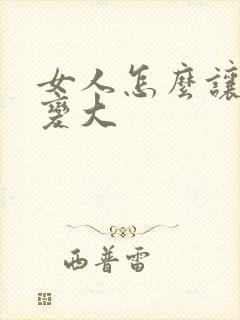 女人怎麼讓
變大
西普雷